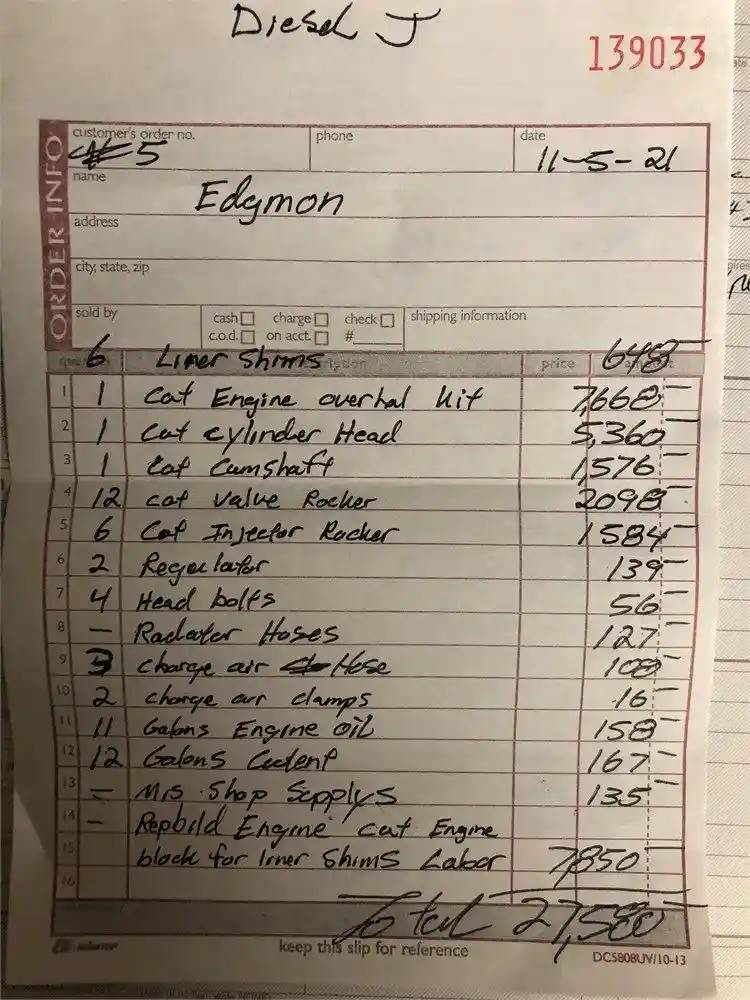 Diesel J
139033
ORDER INFO
customer's order no. phone date
5 11-5-21
name
Edgmon
address
city, state, zip
sold by cash charge check shipping information
c.o.d. on acct. #
6 Liner Shims price 648-
1 1 Cat Engine overhal Kit 7,668-
2 1 Cat cylinder Head 5,360-
3 1 Cat Camshaft 1,576-
4 12 cat Valve Rocker 2098-
5 6 Cat Injector Rocker 1584-
6 2 Regulator 139-
7 4 Head bolts 56-
8 - Radiator Hoses 127-
9 3 charge air Hose 108-
10 2 charge air clamps 16-
11 11 Galons Engine oil 158-
12 12 Galons Coolent 167-
13 - Mis Shop Supplys 135-
14 - Repbild Engine cat Engine
15 block for liner Shims Labor 7,850-
16
Total 27,580-
keep this slip for reference
DC5808UV/10-13